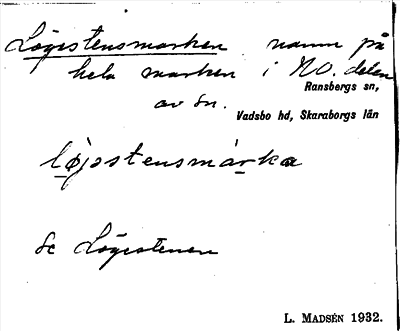 Lögestensmarken namn på
hela marken i NO. delen
Ransbergs sn,
av sn.
Vadsbo hd, Skaraborgs län
løjostensmárka
Se Lögestenen
L. MADSÉN 1932.